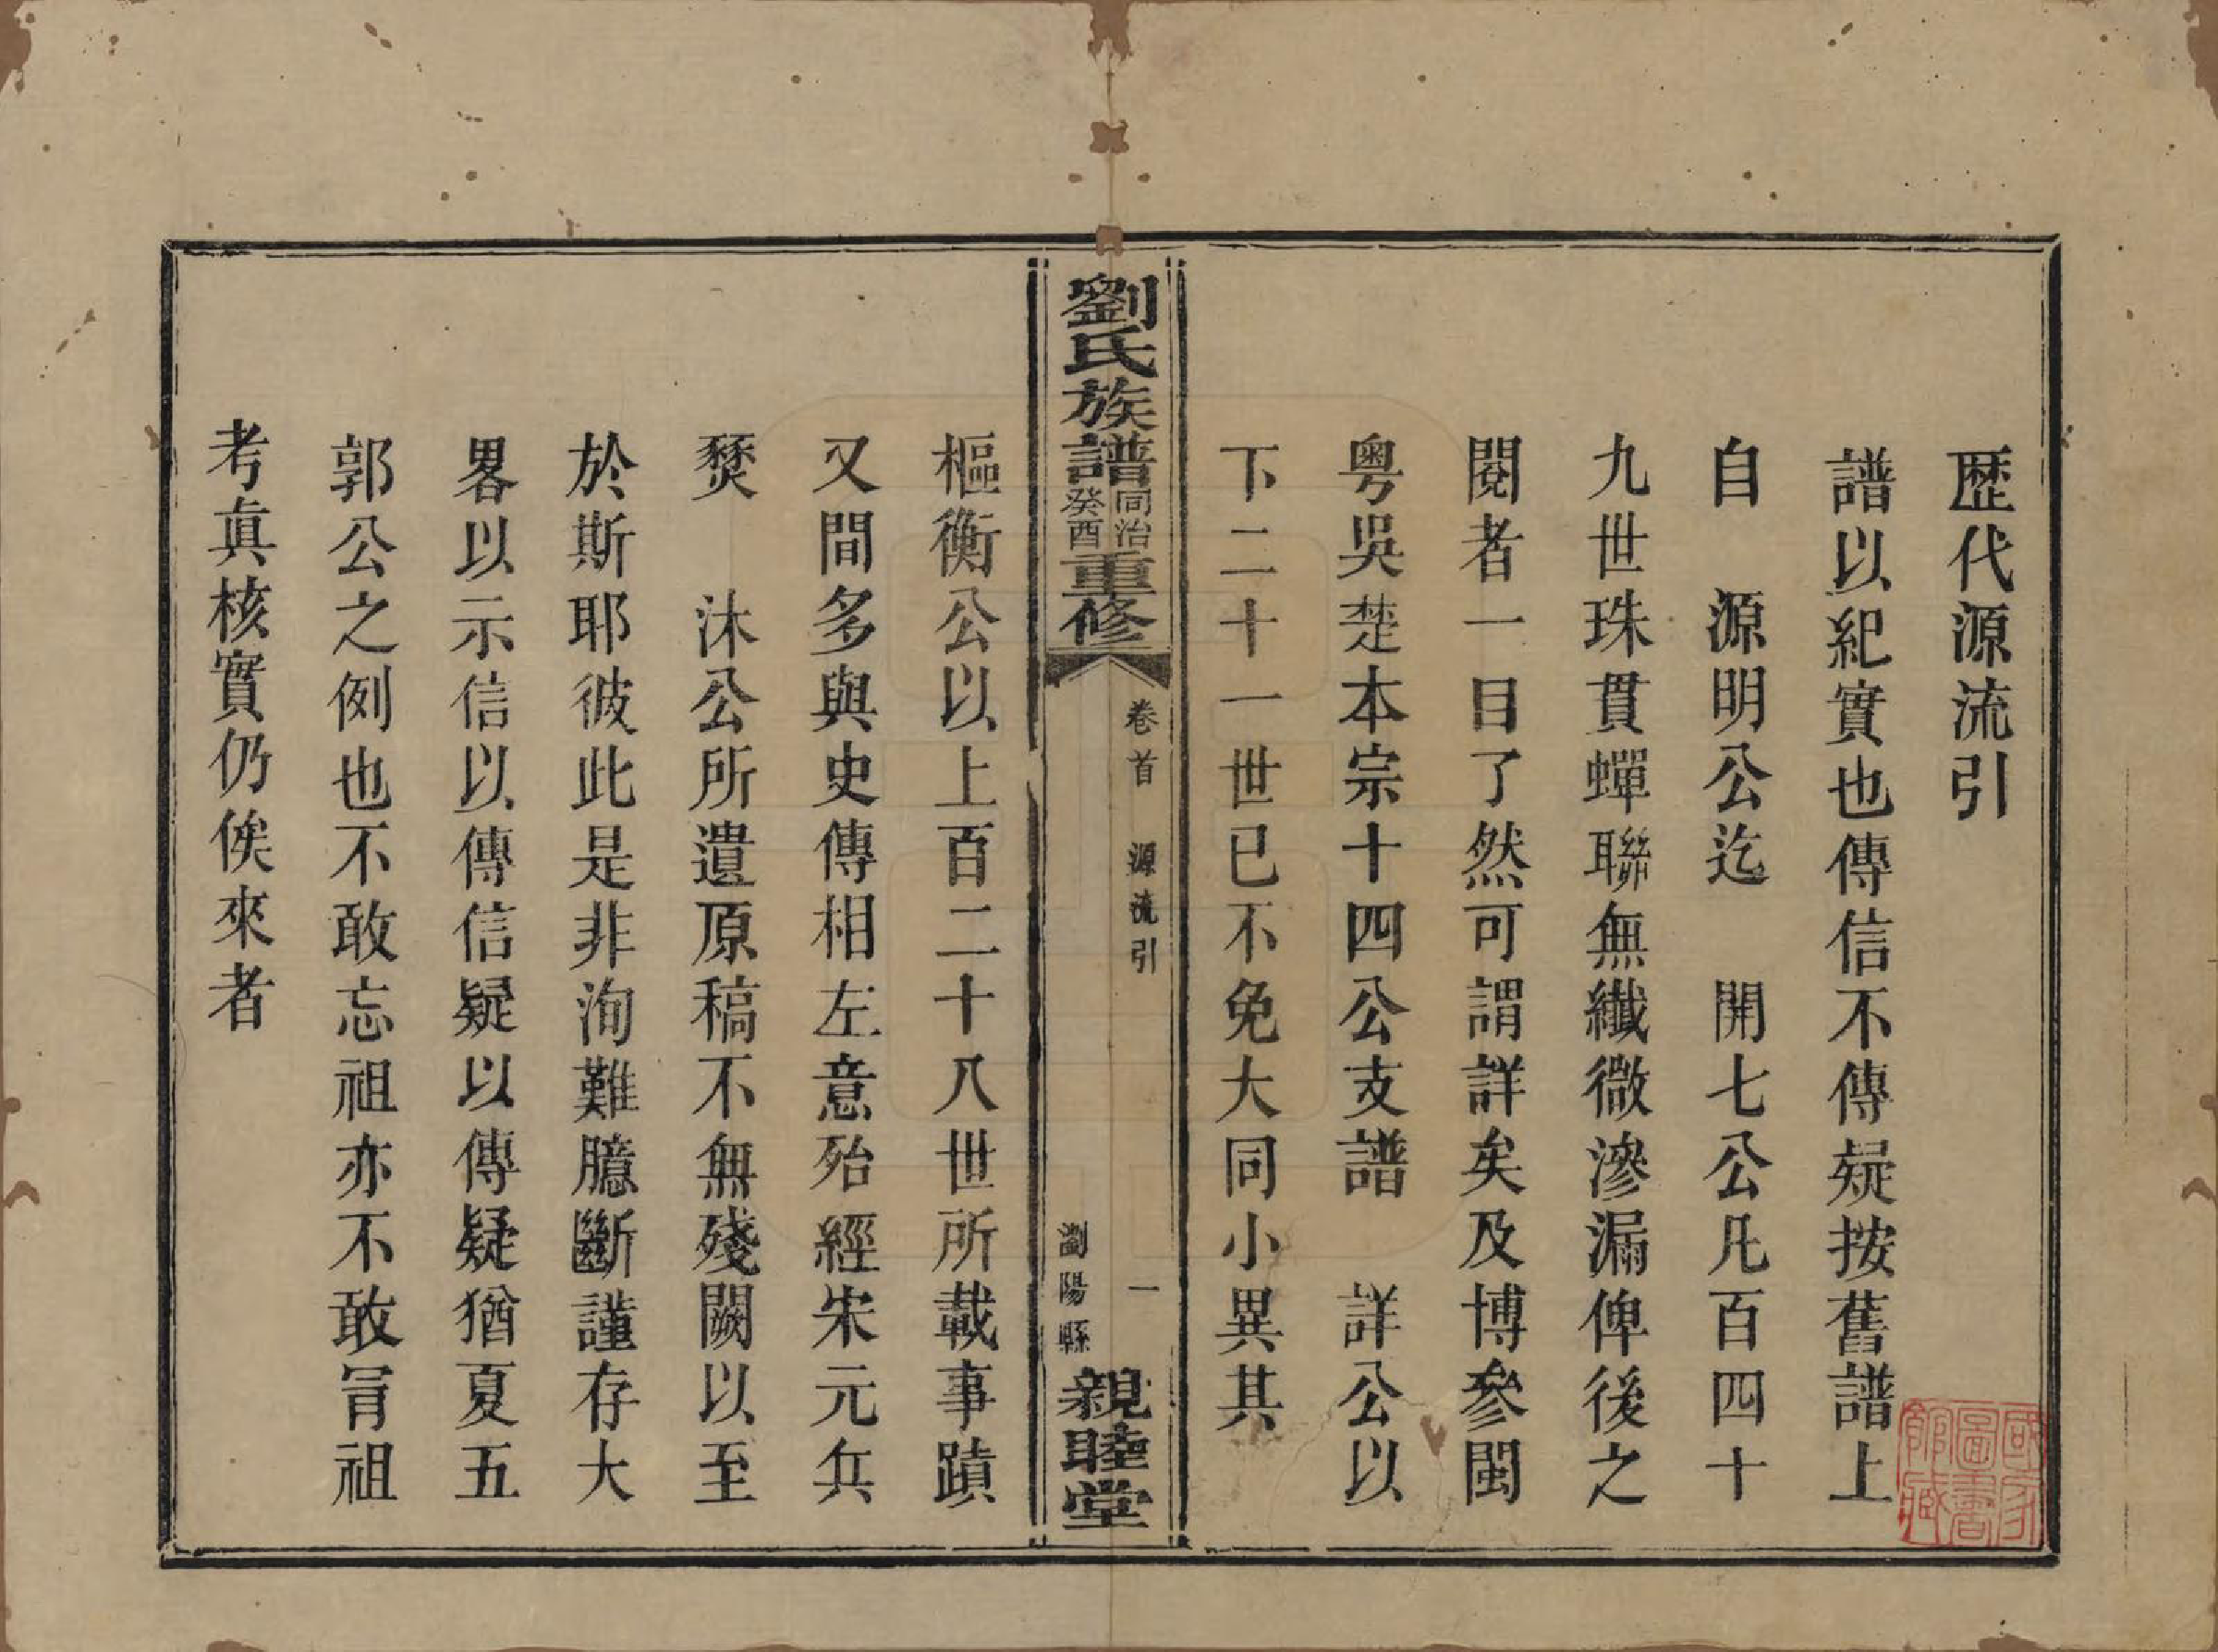 歴代源流引
譜以紀實也傳信不傳疑按舊譜上
自 源明公迄 開七公凡百四十
九世珠貫蟬聯無纖微滲漏俾後之
閱者一目了然可謂詳矣及博參閩
粵吳楚本宗十四公支譜 詳公以
下二十一世已不免大同小異其
劉氏族譜 同治癸酉 重修
卷首 源流引 一
瀏陽縣 親睦堂
樞衡公以上百二十八世所載事蹟
又間多與史傳相左意殆經宋元兵
燹 沐公所遺原稿不無殘闕以至
於斯耶彼此是非洵難臆斷謹存大
畧以示信以傳信疑以傳疑猶夏五
郭公之例也不敢忘祖亦不敢冐祖
考真核實仍俟來者
國家圖書館藏